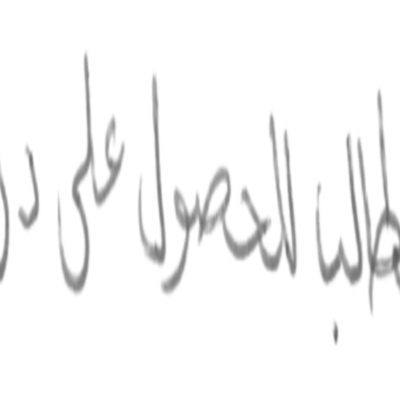 طالب للحصول على در